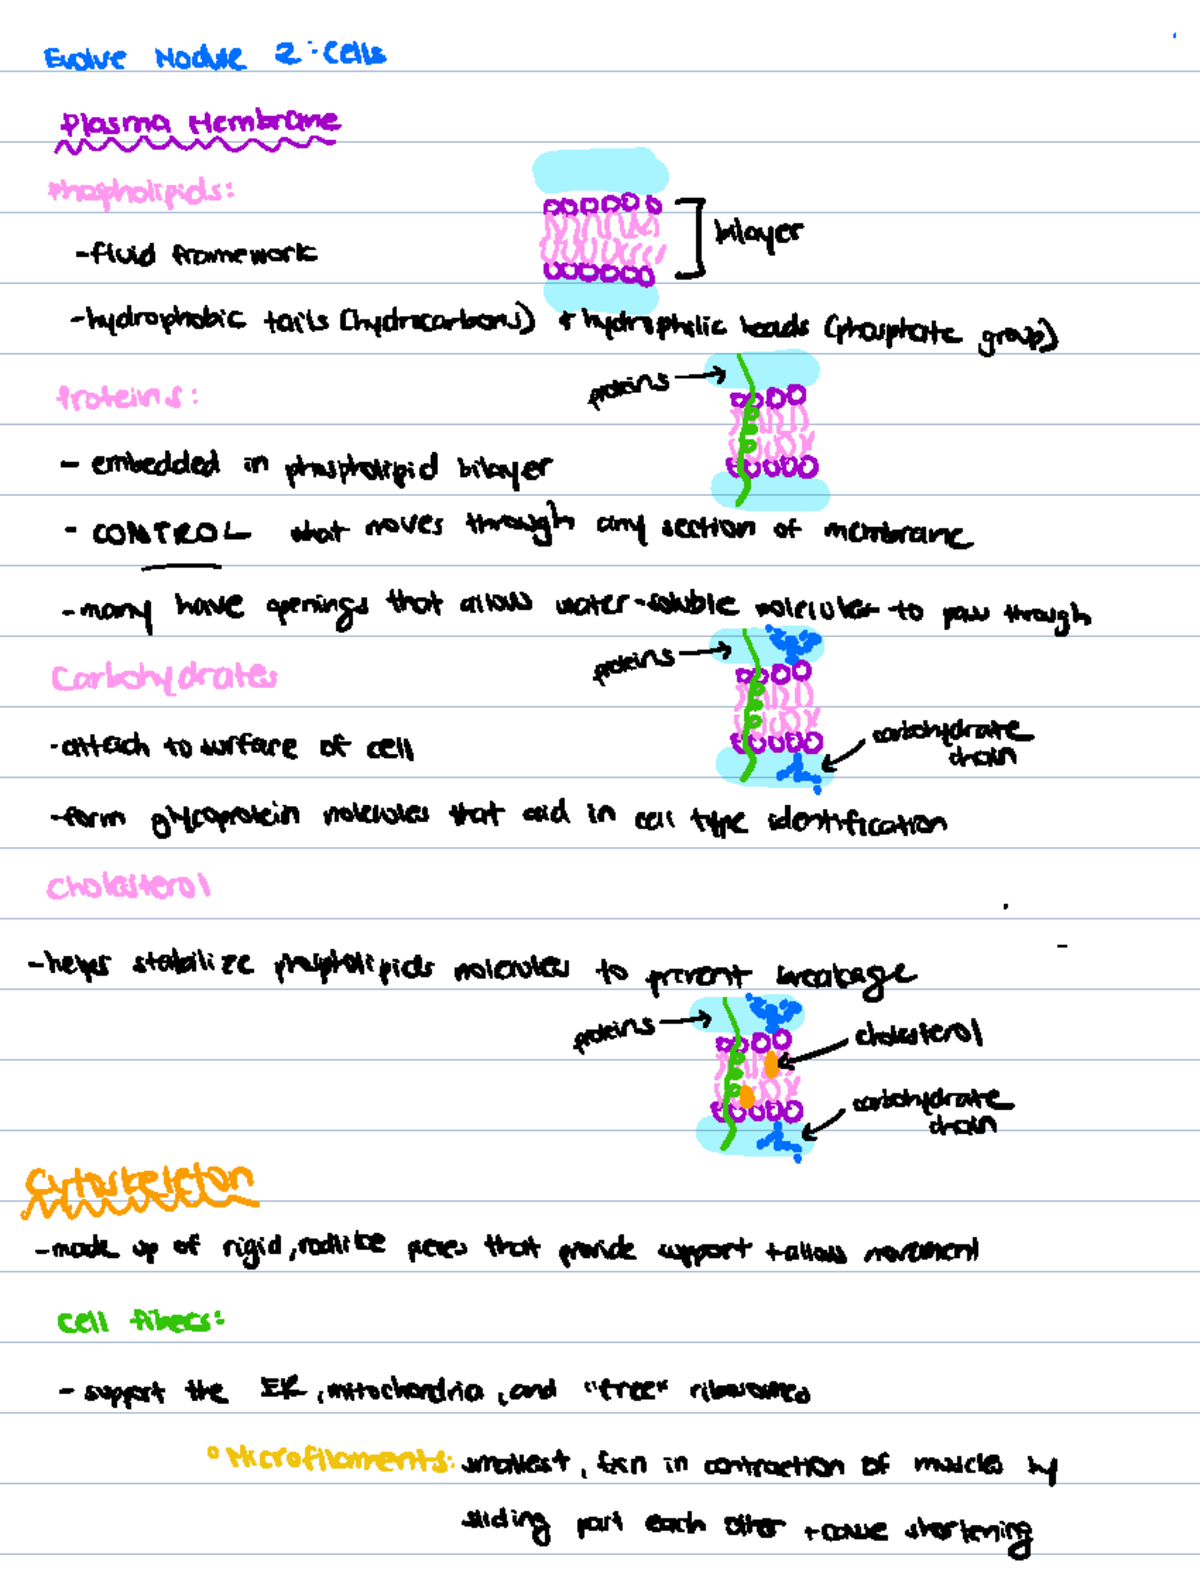 Evolve Module 2: Cells
Plasma Membrane
Phospholipids:
bilayer
-fluid framework
-hydrophobic tails (hydrocarbons) + hydrophilic heads (phosphate group)
proteins
Proteins:
- embedded in phospholipid bilayer
- CONTROL what moves through any section of membrane
-many have openings that allow water-soluble molecules to pass through
proteins
Carbohydrates
carbohydrate
chain
-attach to surface of cell
-form glycoprotein molecules that aid in cell type identification
Cholesterol
-helps stabilize phospholipids molecules to prevent breakage
proteins
cholesterol
carbohydrate
chain
Cytoskeleton
-made up of rigid, rodlike pieces that provide support + allow movement
Cell fibers:
- support the ER, mitochondria, and "free" ribosomes
° Microfilaments: smallest, fxn in contraction of muscles by
sliding past each other + cause shortening